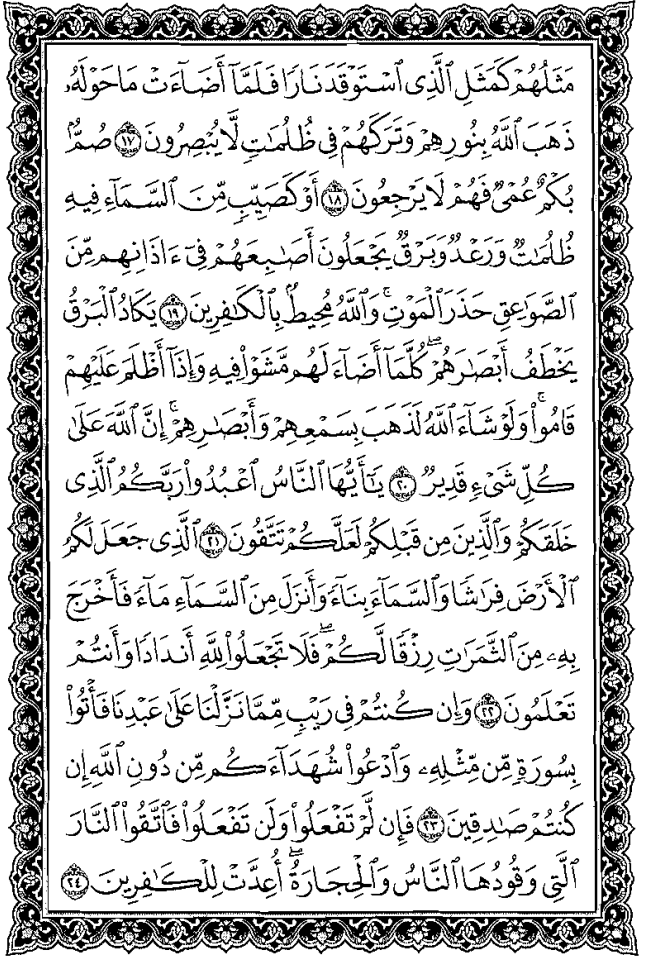 مَثَلُهُمْ كَمَثَلِ ٱلَّذِى ٱسْتَوْقَدَ نَارًا فَلَمَّآ أَضَآءَتْ مَا حَوْلَهُۥ
ذَهَبَ ٱللَّهُ بِنُورِهِمْ وَتَرَكَهُمْ فِى ظُلُمَـٰتٍ لَّا يُبْصِرُونَ ١٧ صُمٌّۢ
بُكْمٌ عُمْىٌ فَهُمْ لَا يَرْجِعُونَ ١٨ أَوْ كَصَيِّبٍ مِّنَ ٱلسَّمَآءِ فِيهِ
ظُلُمَـٰتٌ وَرَعْدٌ وَبَرْقٌ يَجْعَلُونَ أَصَـٰبِعَهُمْ فِىٓ ءَاذَانِهِم مِّنَ
ٱلصَّوَٰعِقِ حَذَرَ ٱلْمَوْتِ ۚ وَٱللَّهُ مُحِيطٌۢ بِٱلْكَـٰفِرِينَ ١٩ يَكَادُ ٱلْبَرْقُ
يَخْطَفُ أَبْصَـٰرَهُمْ ۖ كُلَّمَآ أَضَآءَ لَهُم مَّشَوْا۟ فِيهِ وَإِذَآ أَظْلَمَ عَلَيْهِمْ
قَامُوا۟ ۚ وَلَوْ شَآءَ ٱللَّهُ لَذَهَبَ بِسَمْعِهِمْ وَأَبْصَـٰرِهِمْ ۚ إِنَّ ٱللَّهَ عَلَىٰ
كُلِّ شَىْءٍ قَدِيرٌ ٢٠ يَـٰٓأَيُّهَا ٱلنَّاسُ ٱعْبُدُوا۟ رَبَّكُمُ ٱلَّذِى
خَلَقَكُمْ وَٱلَّذِينَ مِن قَبْلِكُمْ لَعَلَّكُمْ تَتَّقُونَ ٢١ ٱلَّذِى جَعَلَ لَكُمُ
ٱلْأَرْضَ فِرَٰشًا وَٱلسَّمَآءَ بِنَآءً وَأَنزَلَ مِنَ ٱلسَّمَآءِ مَآءً فَأَخْرَجَ
بِهِۦ مِنَ ٱلثَّمَرَٰتِ رِزْقًا لَّكُمْ ۖ فَلَا تَجْعَلُوا۟ لِلَّهِ أَندَادًا وَأَنتُمْ
تَعْلَمُونَ ٢٢ وَإِن كُنتُمْ فِى رَيْبٍ مِّمَّا نَزَّلْنَا عَلَىٰ عَبْدِنَا فَأْتُوا۟
بِسُورَةٍ مِّن مِّثْلِهِۦ وَٱدْعُوا۟ شُهَدَآءَكُم مِّن دُونِ ٱللَّهِ إِن
كُنتُمْ صَـٰدِقِينَ ٢٣ فَإِن لَّمْ تَفْعَلُوا۟ وَلَن تَفْعَلُوا۟ فَٱتَّقُوا۟ ٱلنَّارَ
ٱلَّتِى وَقُودُهَا ٱلنَّاسُ وَٱلْحِجَارَةُ ۖ أُعِدَّتْ لِلْكَـٰفِرِينَ ٢٤